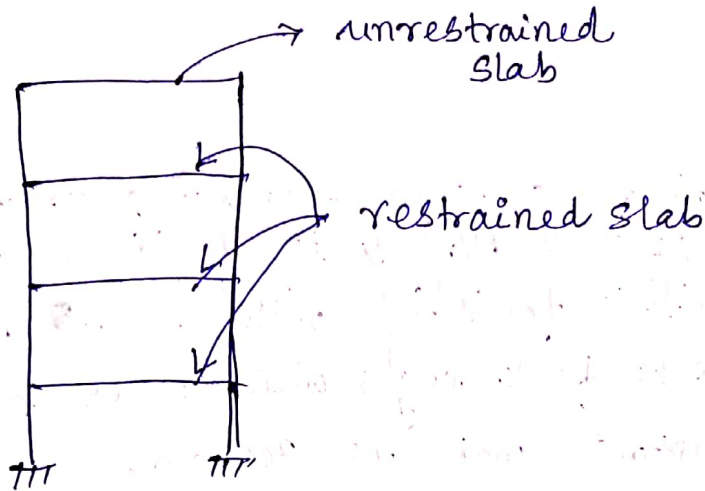 unrestrained
slab
restrained slab